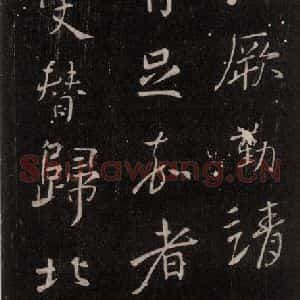 厥勤請
足者
替歸北
Shufawang.CN